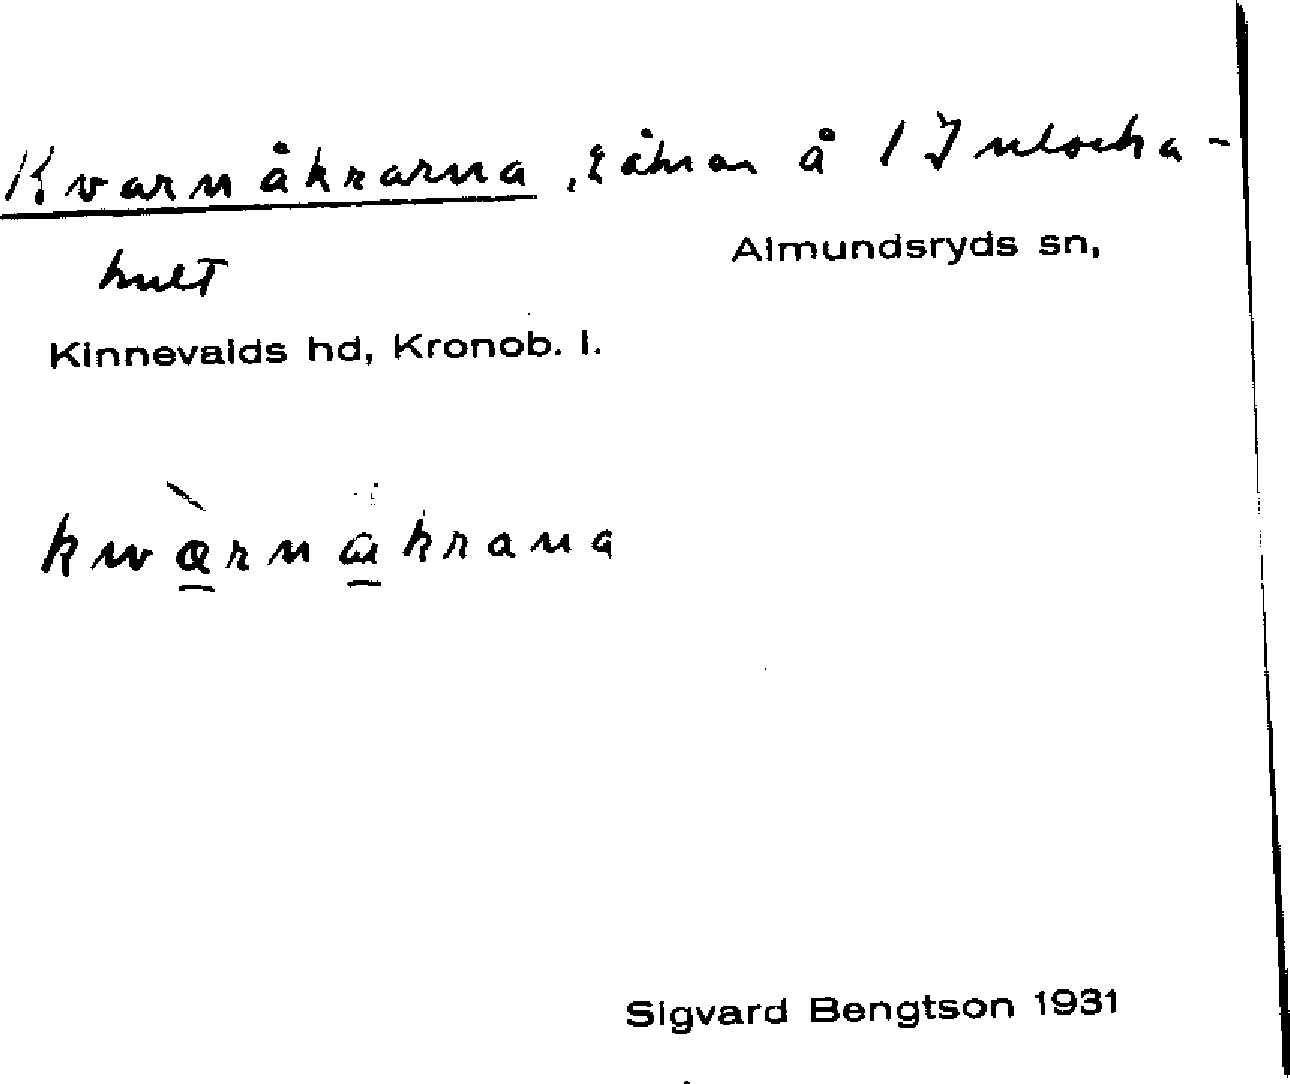 Kvarnåkrarna, 2 åkrar å 1 Julocka-
Almundsryds sn,
hult
Kinnevalds hd, Kronob. l.
kwarnakrana
Sigvard Bengtson 1931